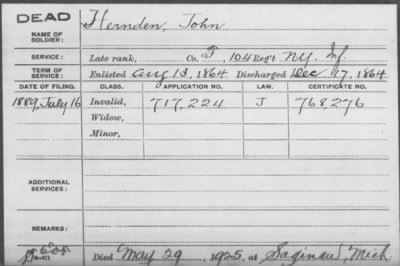 DEAD
Hernden, John
NAME OF SOLDIER:
SERVICE: Late rank, Co. F, 104 Reg't N.Y. Inf.
TERM OF SERVICE: Enlisted Aug 13, 1864 Discharged Dec 17, 1864
DATE OF FILING. CLASS. APPLICATION NO. LAW. CERTIFICATE NO.
1889, July 16 Invalid, 717,224 J 768,276
Widow,
Minor,
ADDITIONAL SERVICES:
REMARKS:
Died May 29, 1925, at Saginaw, Mich